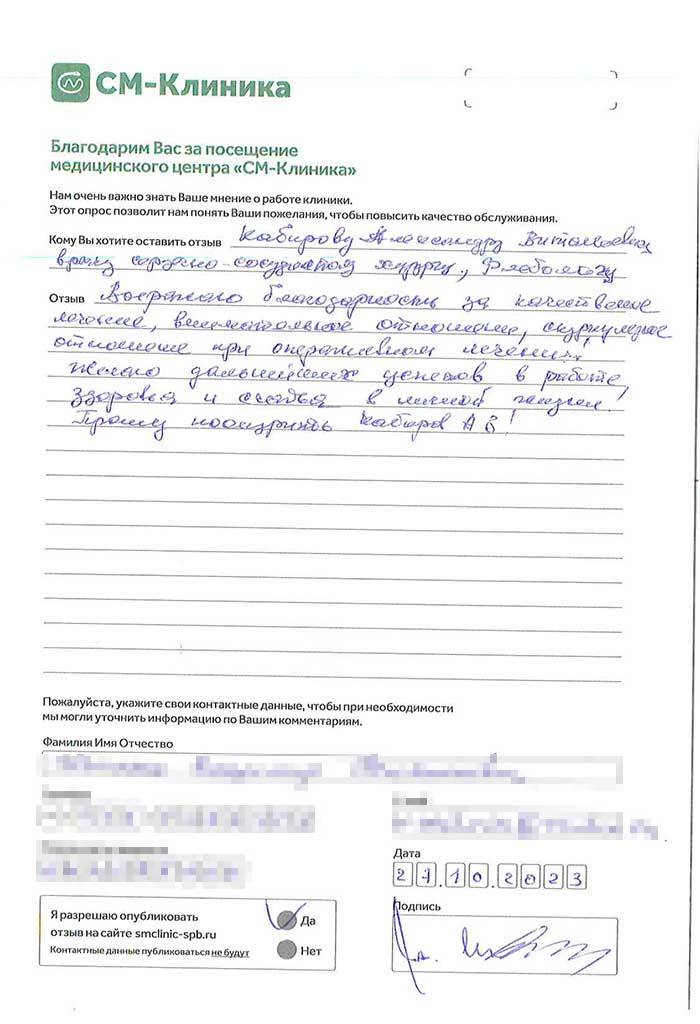 СМ-Клиника
Благодарим Вас за посещение
медицинского центра «СМ-Клиника»
Нам очень важно знать Ваше мнение о работе клиники.
Этот опрос позволит нам понять Ваши пожелания, чтобы повысить качество обслуживания.
Кому Вы хотите оставить отзыв Кабирову Александру Витальевичу
врачу сердечно-сосудистому хирургу, Флебологу
Отзыв Выражаю благодарность за качественное
лечение, внимательное отношение,
отношение при оперативном лечении,
Желаю дальнейших успехов в работе,
здоровья и счастья в личной жизни!
Прошу поощрить Кабиров А В!
Пожалуйста, укажите свои контактные данные, чтобы при необходимости
мы могли уточнить информацию по Вашим комментариям.
Фамилия Имя Отчество
Дата
27.10.2023
Я разрешаю опубликовать
отзыв на сайте smclinic-spb.ru
Контактные данные публиковаться не будут
Да
Нет
Подпись